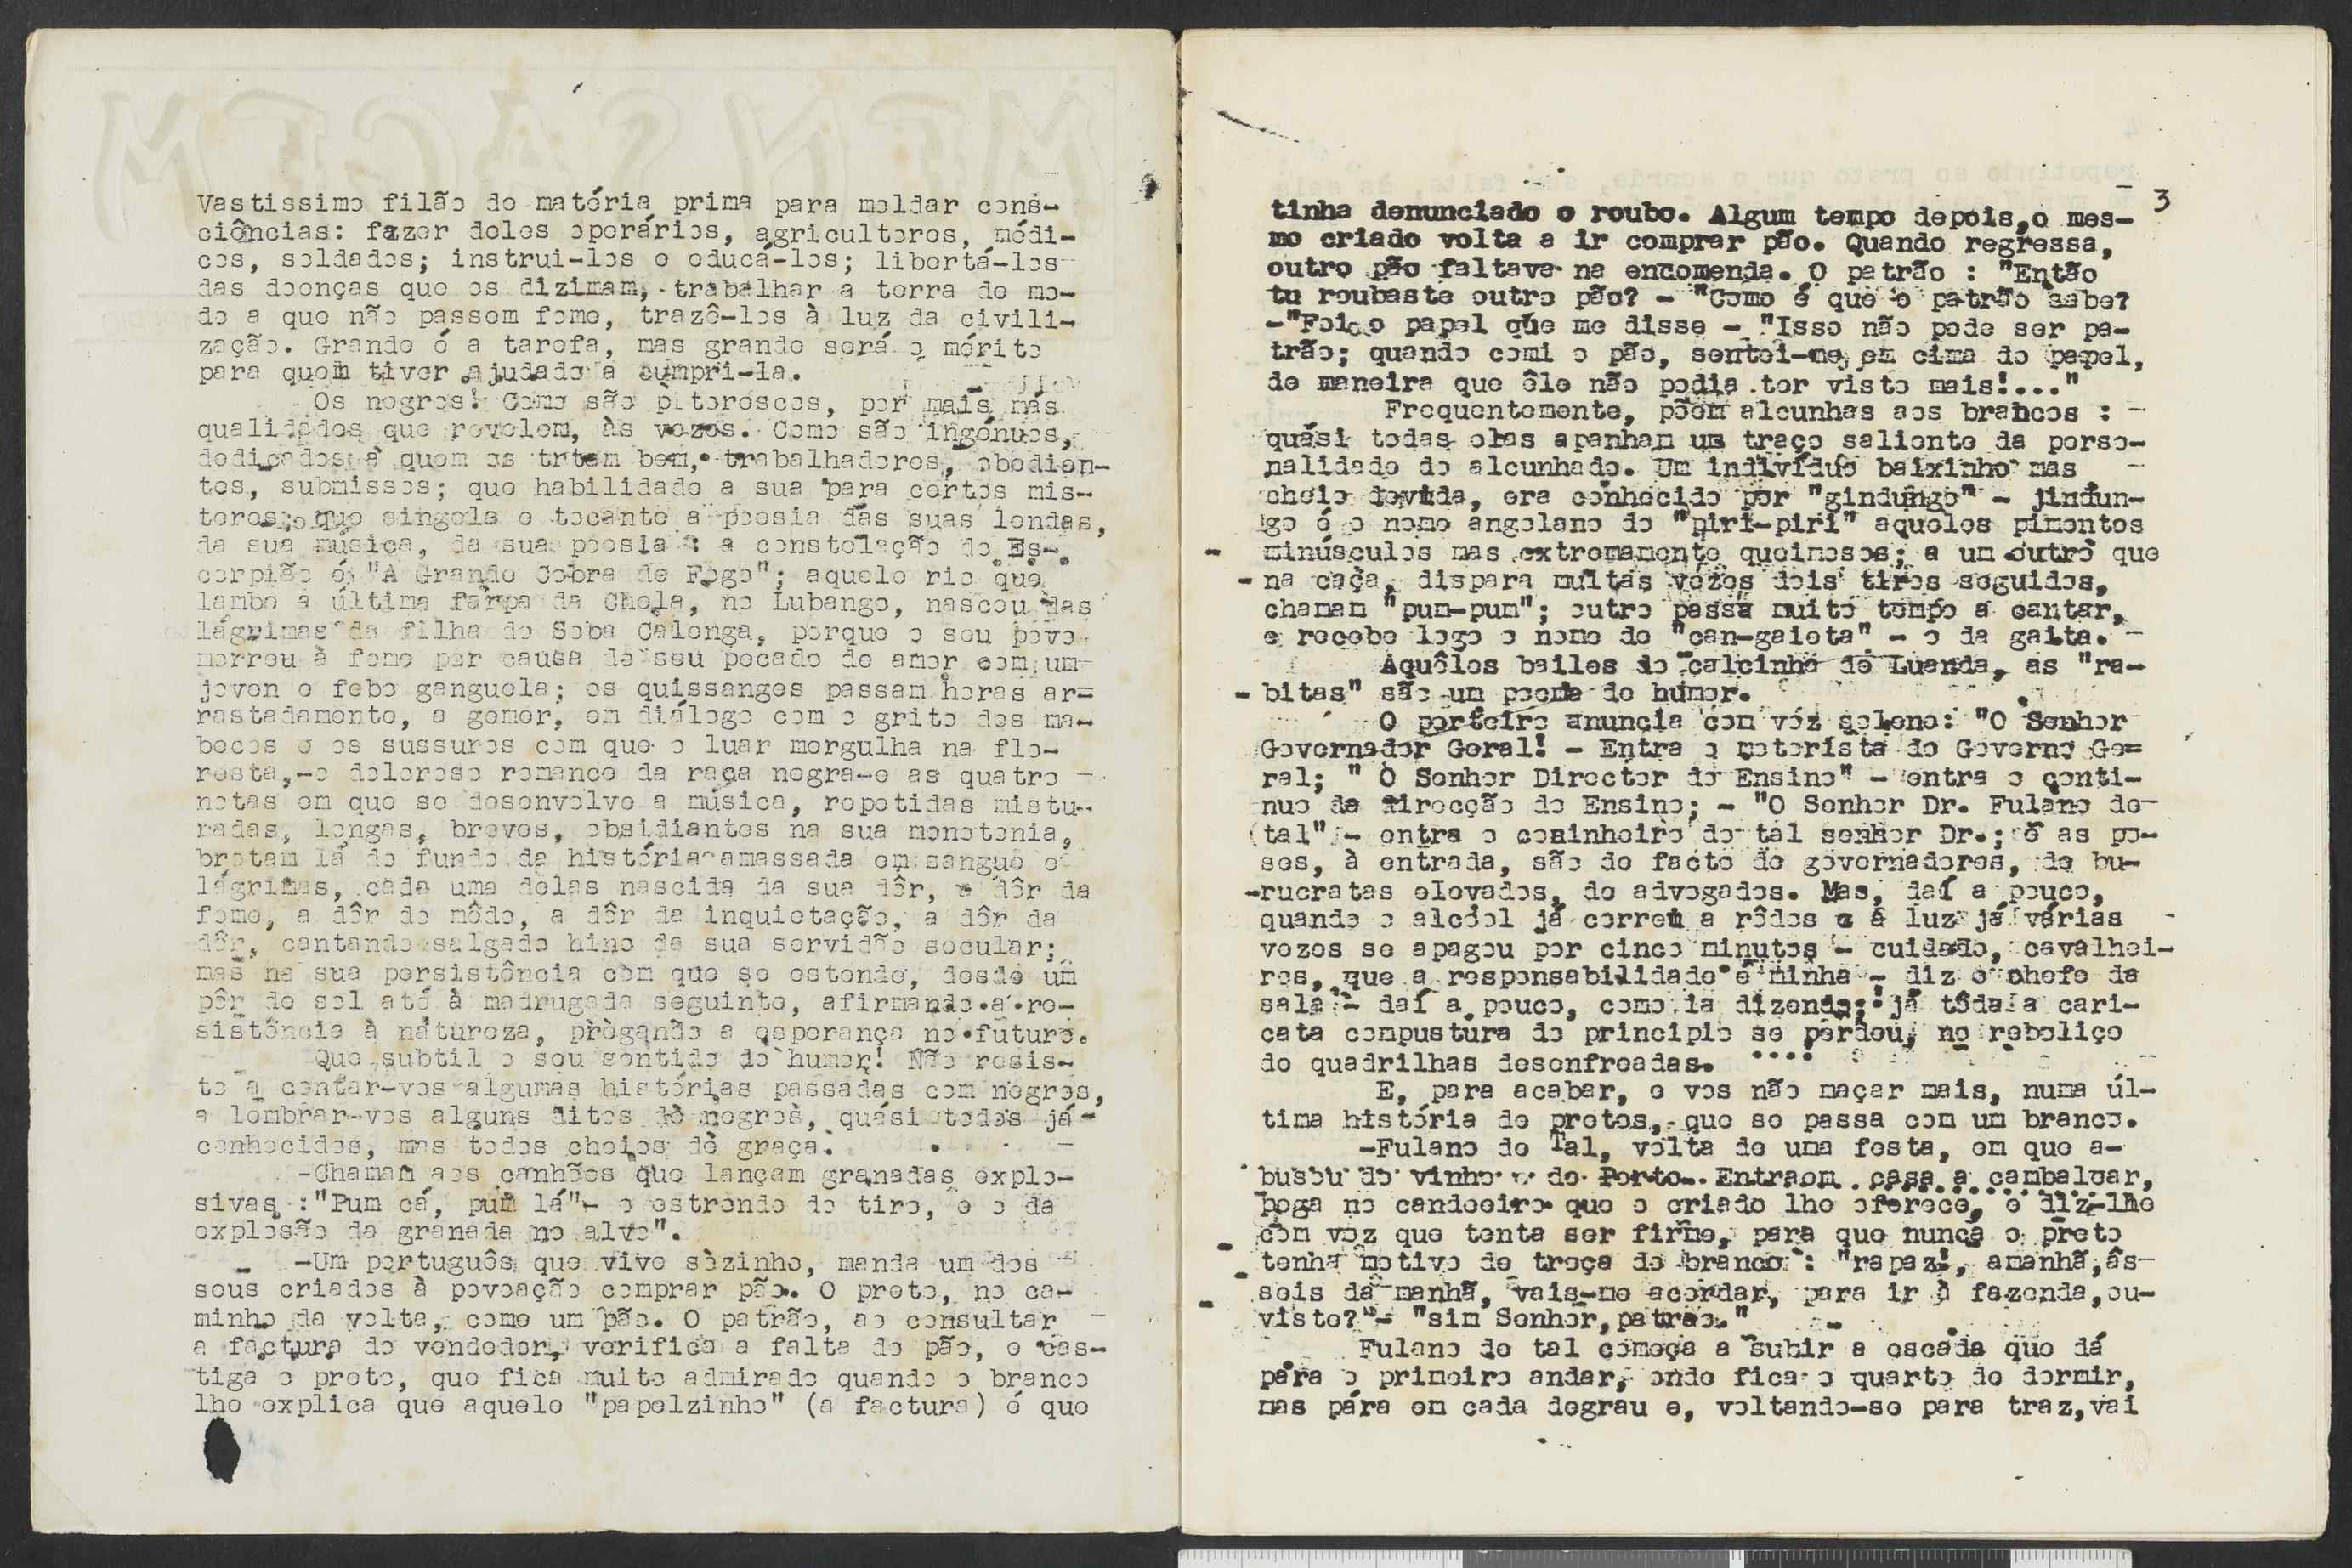 Vastissimo filão de matéria prima para moldar cons-
ciências: fazer deles operários, agricultores, médi-
cos, soldados; instrui-los e educá-los; libertá-los
das doenças que os dizimam, trabalhar a terra de mo-
do a que não passem fome, trazê-los à luz da civili-
zação. Grande é a tarefa, mas grande será o mérito
para quem tiver ajudado a cumpri-la.
Os negros! Como são pitorescos, por mais más
qualidades que revelem, às vezes. Como são ingénuos,
dedicados a quem os tratam bem, trabalhadores, obedien-
tes, submissos; que habilidade a sua para certos mis-
teres; que singela e tocante a poesia das suas lendas,
da sua música, da sua poesia : a constelação do Es-
corpião é "A Grande Cobra de Fogo"; aquele rio que
lambe a última farpa da Chela, no Lubango, nasceu das
lágrimas da filha do Soba Calenga, porque o seu povo
morreu à fome por causa do seu pecado de amor com um
joven e febo ganguela; os quissanges passam horas ar=
rastadamente, a gemer, em diálogo com o grito dos ma-
becos e os sussuros com que o luar mergulha na flo-
resta,-o doloroso romance da raça negra-e as quatro
notas em que se desenvolve a música, repetidas mistu-
radas, longas, breves, obsidiantes na sua monotonia,
brotam lá do fundo da história amassada em sangue e
lágrimas, cada uma delas nascida da sua dôr, a dôr da
fome, a dôr do mêdo, a dôr da inquietação, a dôr da
dôr, cantando salgado hino da sua servidão secular;
mas na sua persistência com que se estende, desde um
pôr do sol até à madrugada seguinte, afirmando a re-
sistência à natureza, prègando a esperança no futuro.
Que subtil o seu sentido do humor! Não resis-
to a contar-vos algumas histórias passadas com negros,
a lembrar-vos alguns ditos de negros, quási todos já
conhecidos, mas todos cheios de graça.
-Chamam aos canhões que lançam granadas explo-
sivas :"Pum cá, pum lá"- o estrondo do tiro, e o da
explosão da granada no alvo".
-Um português que vive sòzinho, manda um dos
seus criados à povoação comprar pão. O preto, no ca-
minho da volta, come um pão. O patrão, ao consultar
a factura do vendedor, verifica a falta do pão, e cas-
tiga o preto, que fica muito admirado quando o branco
lhe explica que aquele "papelzinho" (a factura) é que
3
tinha denunciado o roubo. Algum tempo depois,o mes-
mo criado volta a ir comprar pão. Quando regressa,
outro pão faltava na encomenda. O patrão : "Então
tu roubaste outro pão? - "Como é que o patrão sabe?
-"Foi o papel que me disse - "Isso não pode ser pa-
trão; quando comi o pão, sentei-me em cima do papel,
de maneira que êle não podia ter visto mais!..."
Frequentemente, põem alcunhas aos brancos :
quási todas elas apanham um traço saliente da perso-
nalidade do alcunhado. Um indivíduo baixinho mas
cheio devida, era conhecido por "gindungo" - jindun-
go é o nome angolano do "piri-piri" aqueles pimentos
minúsculos mas extremamente queimosos; a um outro que
na caça, dispara muitas vezes dois tiros seguidos,
chamam "pum-pum"; outro passa muito tempo a cantar,
e recebe logo o nome do "can-gaiota" - o da gaita.
Aquêles bailes do calcinha de Luanda, as "re-
bitas" são um poema de humor.
O porteiro anuncia com vóz solene: "O Senhor
Governador Geral! - Entra o motorista do Governo Ge=
ral; " O Senhor Director do Ensino" - entra o conti-
nuo da direcção do Ensino; - "O Senhor Dr. Fulano de
tal" - entra o cosinheiro do tal senhor Dr.; e as po-
ses, à entrada, são de facto de governadores, de bu-
rucratas elevados, de advogados. Mas, daí a pouco,
quando o alcóol já correu a rôdos e a luz já várias
vezes se apagou por cinco minutos - cuidado, cavalhei-
ros, que a responsabilidade é minha - diz o chefe da
sala - daí a pouco, como ia dizendo; já tôda a cari-
cata compustura do principio se perdeu, no reboliço
de quadrilhas desenfreadas. ....
E, para acabar, e vos não maçar mais, numa úl-
tima história de pretos, que se passa com um branco.
-Fulano de Tal, volta de uma festa, em que a-
busou do vinho do Porto. Entraem casa a cambalear,
pega no candeeiro que o criado lhe oferece, e diz-lhe
com voz que tenta ser firme, para que nunca o preto
tenha motivo de troça do branco : "rapaz!, amanhã,ás
seis da manhã, vais-me acordar, para ir à fazenda,ou-
viste?"- "sim Senhor,patrão."
Fulano de tal começa a subir a escada que dá
para o primeiro andar, onde fica o quarto de dormir,
mas pára em cada degrau e, voltando-se para traz,vai